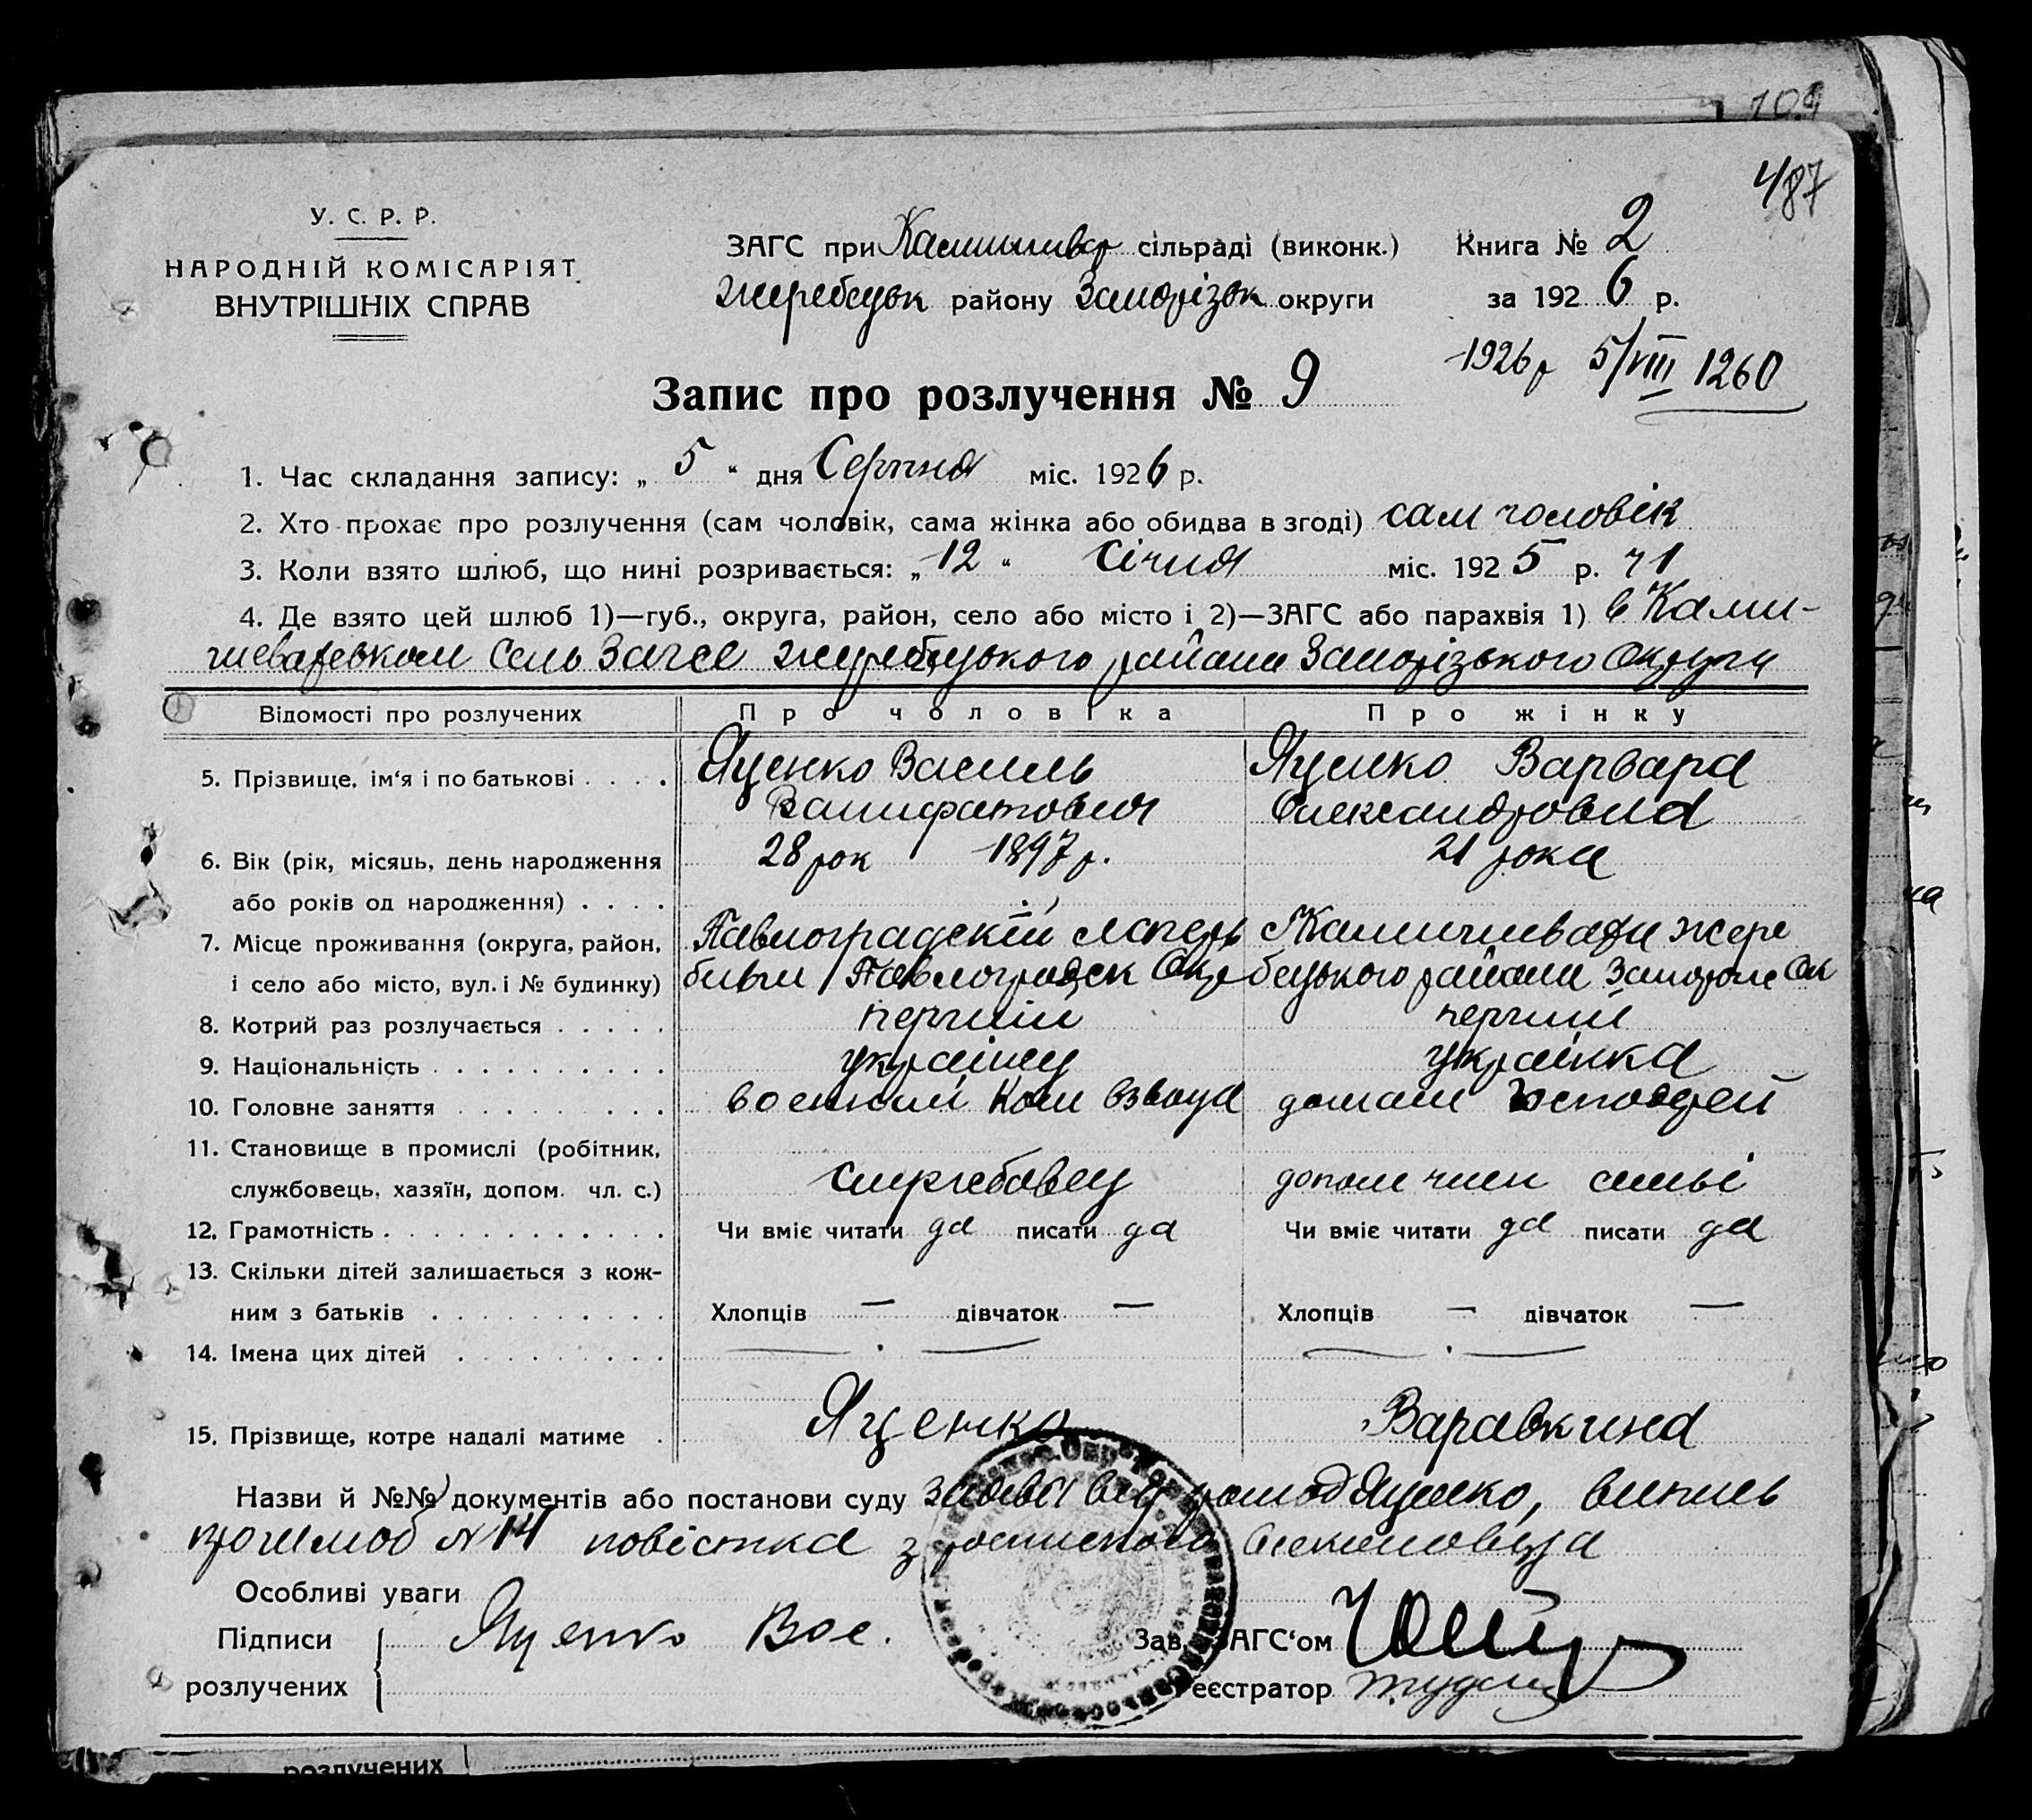 109
487
У. С. Р. Р.
НАРОДНІЙ КОМІСАРІЯТ
ВНУТРІШНІХ СПРАВ
ЗАГС при Камишевар сільраді (виконк.) Книга № 2
Жеребецьк району Запорізьк округи за 1926 р.
1926 р 5/VIII 1260
Запис про розлучення № 9
1. Час складання запису: „ 5 “ дня Серпня міс. 1926 р.
2. Хто прохає про розлучення (сам чоловік, сама жінка або обидва в згоді) сам чоловік
3. Коли взято шлюб, що нині розривається: „ 12 “ Січня міс. 1925 р. ч1
4. Де взято цей шлюб 1)—губ., округа, район, село або місто і 2)—ЗАГС або парахвія 1) в Ками-
шеваревском Сель Загсе жеребецького района Запорізького Округи
Відомості про розлучених Про чоловіка Про жінку
5. Прізвище, ім‘я і по батькові . . . . Яценко Василь Яценко Варвара
Олександровна
6. Вік (рік, місяць, день народження 28 рок 1897 р. 21 рока
або років од народження) . . . .
7. Місце проживання (округа, район, Павлоградскій Камишевати жере
і село або місто, вул. і № будинку) Павлоградск Окр бецького района Запорож Ок
8. Котрий раз розлучається . . . . . перший перший
9. Національність . . . . . . . . . . українец українка
10. Головне заняття . . . . . . . . . военный Ком взвода домаш господей
11. Становище в промислі (робітник,
службовець, хазяїн, допом. чл. с.) службовец допом член семьї
12. Грамотність . . . . . . . . . . . . . Чи вміє читати да писати да Чи вміє читати да писати да
13. Скільки дітей залишається з кож-
ним з батьків . . . . . . . . . . Хлопців — дівчаток — Хлопців — дівчаток —
14. Імена цих дітей . . . . . . . . .
15. Прізвище, котре надалі матиме . Яценко Варавкина
Назви й №№ документів або постанови суду заява від громад Яценко, випись
прошлюб N 14 повістка з
Особливі уваги
Підписи Яценко Вас. Зав. ЗАГС‘ом
розлучених Реєстратор
розлучених